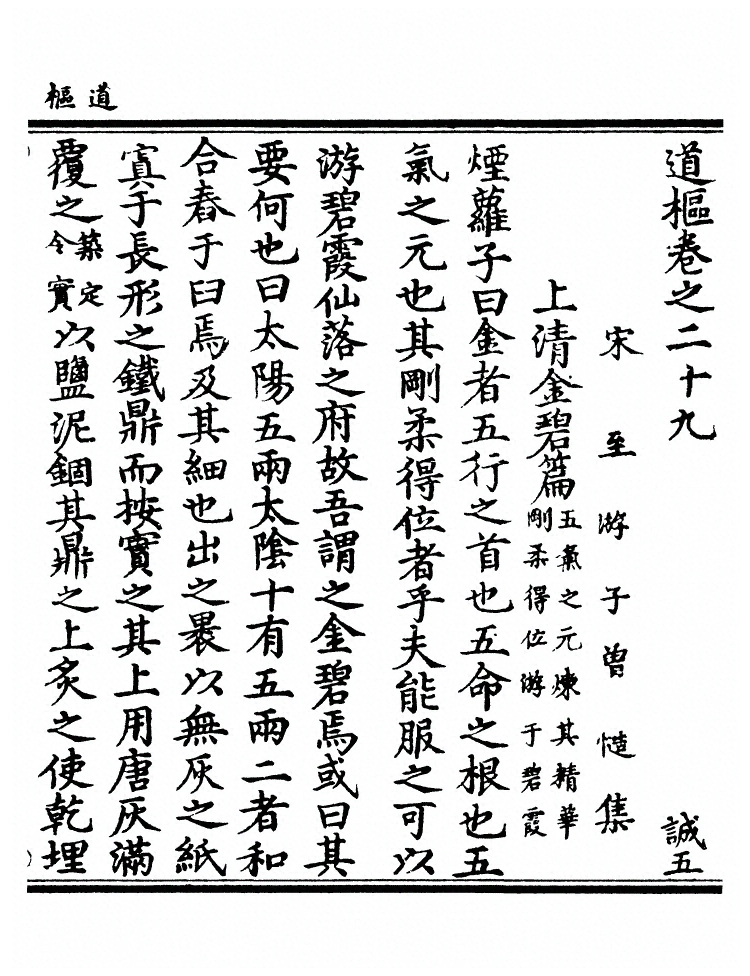 道樞
道樞卷之二十九 誠五
宋至游子曾慥集
上清金碧篇 五氣之元煉其精華
剛柔得位游于碧霞
煙蘿子曰金者五行之首也五命之根也五
氣之元也其剛柔得位者乎夫能服之可以
游碧霞仙落之府故吾謂之金碧焉或曰其
要何也曰太陽五兩太陰十有五兩二者和
合舂于臼焉及其細也出之褁以無灰之紙
寘于長形之鐵鼎而按實之其上用唐灰滿
覆之築定令實以鹽泥錮其鼎之上炙之使乾埋